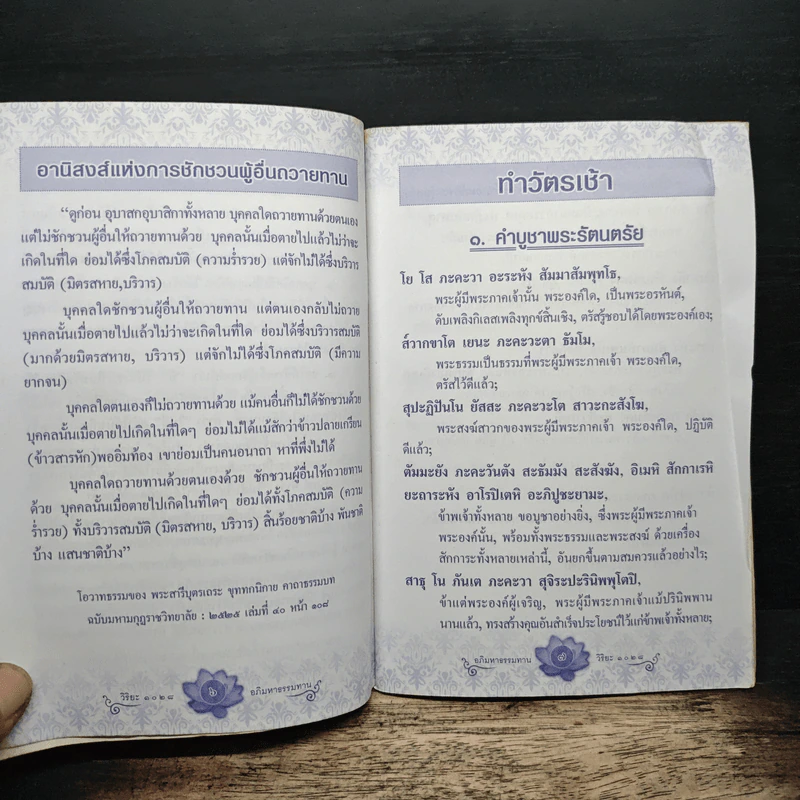 อานิสงส์แห่งการชักชวนผู้อื่นถวายทาน
“ดูก่อน อุบาสกอุบาสิกาทั้งหลาย บุคคลใดถวายทานด้วยตนเอง
แต่ไม่ชักชวนผู้อื่นให้ถวายทานด้วย บุคคลนั้นเมื่อตายไปแล้วไม่ว่าจะ
เกิดในที่ใด ย่อมได้ซึ่งโภคสมบัติ (ความร่ำรวย) แต่จักไม่ได้ซึ่งบริวาร
สมบัติ (มิตรสหาย,บริวาร)
บุคคลใดชักชวนผู้อื่นให้ถวายทาน แต่ตนเองกลับไม่ถวาย
บุคคลนั้นเมื่อตายไปแล้วไม่ว่าจะเกิดในที่ใด ย่อมได้ซึ่งบริวารสมบัติ
(มากด้วยมิตรสหาย, บริวาร) แต่จักไม่ได้ซึ่งโภคสมบัติ (มีความ
ยากจน)
บุคคลใดตนเองก็ไม่ถวายทานด้วย แม้คนอื่นก็ไม่ได้ชักชวนด้วย
บุคคลนั้นเมื่อตายไปเกิดในที่ใดๆ ย่อมไม่ได้แม้สักว่าข้าวปลายเกรียน
(ข้าวสารหัก)พออิ่มท้อง เขาย่อมเป็นคนอนาถา หาที่พึ่งไม่ได้
บุคคลใดถวายทานด้วยตนเองด้วย ชักชวนผู้อื่นให้ถวายทาน
ด้วย บุคคลนั้นเมื่อตายไปเกิดในที่ใดๆ ย่อมได้ทั้งโภคสมบัติ (ความ
ร่ำรวย) ทั้งบริวารสมบัติ (มิตรสหาย, บริวาร) สิ้นร้อยชาติบ้าง พันชาติ
บ้าง แสนชาติบ้าง”
โอวาทธรรมของ พระสารีบุตรเถระ ขุททกนิกาย คาถาธรรมบท
ฉบับมหามกุฏราชวิทยาลัย : ๒๕๒๕ เล่มที่ ๔๐ หน้า ๑๐๘
วิริยะ ๑๐๒๘
๖
อภิมหาธรรมทาน
ทำวัตรเช้า
๑. คำบูชาพระรัตนตรัย
โย โส ภะคะวา อะระหัง สัมมาสัมพุทโธ,
พระผู้มีพระภาคเจ้านั้น พระองค์ใด, เป็นพระอรหันต์,
ดับเพลิงกิเลสเพลิงทุกข์สิ้นเชิง, ตรัสรู้ชอบได้โดยพระองค์เอง;
ส๎วากขาโต เยนะ ภะคะวะตา ธัมโม,
พระธรรมเป็นธรรมที่พระผู้มีพระภาคเจ้า พระองค์ใด,
ตรัสไว้ดีแล้ว;
สุปะฏิปันโน ยัสสะ ภะคะวะโต สาวะกะสังโฆ,
พระสงฆ์สาวกของพระผู้มีพระภาคเจ้า พระองค์ใด, ปฏิบัติ
ดีแล้ว;
ตัมมะยัง ภะคะวันตัง สะธัมมัง สะสังฆัง, อิเมหิ สักกาเรหิ
ยะถาระหัง อาโรปิเตหิ อะภิปูชะยามะ,
ข้าพเจ้าทั้งหลาย ขอบูชาอย่างยิ่ง, ซึ่งพระผู้มีพระภาคเจ้า
พระองค์นั้น, พร้อมทั้งพระธรรมและพระสงฆ์ ด้วยเครื่อง
สักการะทั้งหลายเหล่านี้, อันยกขึ้นตามสมควรแล้วอย่างไร;
สาธุ โน ภันเต ภะคะวา สุจิระปะรินิพพุโตปิ,
ข้าแต่พระองค์ผู้เจริญ, พระผู้มีพระภาคเจ้าแม้ปรินิพพาน
นานแล้ว, ทรงสร้างคุณอันสำเร็จประโยชน์ไว้แก่ข้าพเจ้าทั้งหลาย;
อภิมหาธรรมทาน
๗
วิริยะ ๑๐๒๘